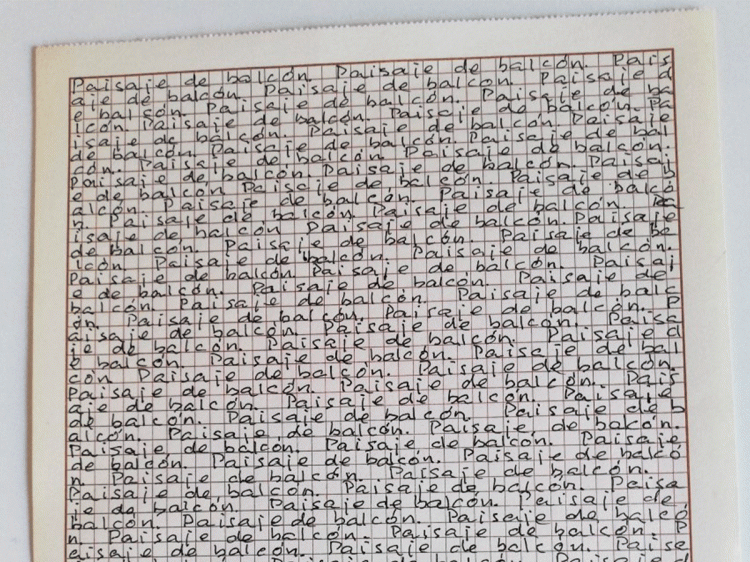 Paisaje de balcón. Paisaje de balcón. Pais
aje de balcón. Paisaje de balcón. Paisaje d
e balcón. Paisaje de balcón. Paisaje de ba
lcón. Paisaje de balcón. Paisaje de balcón. Pa
isaje de balcón. Paisaje de balcón. Paisaje
de balcón. Paisaje de balcón. Paisaje de bal
cón. Paisaje de balcón. Paisaje de balcón.
Paisaje de balcón. Paisaje de balcón. Paisaj
e de balcón. Paisaje de balcón. Paisaje de b
alcón. Paisaje de balcón. Paisaje de balcó
n. Paisaje de balcón. Paisaje de balcón. Pa
isaje de balcón. Paisaje de balcón. Paisaje
de balcón. Paisaje de balcón. Paisaje de ba
lcón. Paisaje de balcón. Paisaje de balcón.
Paisaje de balcón. Paisaje de balcón. Paisaj
e de balcón. Paisaje de balcón. Paisaje de
balcón. Paisaje de balcón. Paisaje de balc
ón. Paisaje de balcón. Paisaje de balcón. P
aisaje de balcón. Paisaje de balcón. Paisa
je de balcón. Paisaje de balcón. Paisaje d
e balcón. Paisaje de balcón. Paisaje de bal
cón. Paisaje de balcón. Paisaje de balcón.
Paisaje de balcón. Paisaje de balcón. Pais
aje de balcón. Paisaje de balcón. Paisaje
de balcón. Paisaje de balcón. Paisaje de b
alcón. Paisaje de balcón. Paisaje de balcón.
Paisaje de balcón. Paisaje de balcón. Paisaje
de balcón. Paisaje de balcón. Paisaje de balcó
n. Paisaje de balcón. Paisaje de balcón.
Paisaje de balcón. Paisaje de balcón. Paisa
je de balcón. Paisaje de balcón. Paisaje de
balcón. Paisaje de balcón. Paisaje de balcó
n. Paisaje de balcón. Paisaje de balcón. P
aisaje de balcón. Paisaje de balcón. Paisa